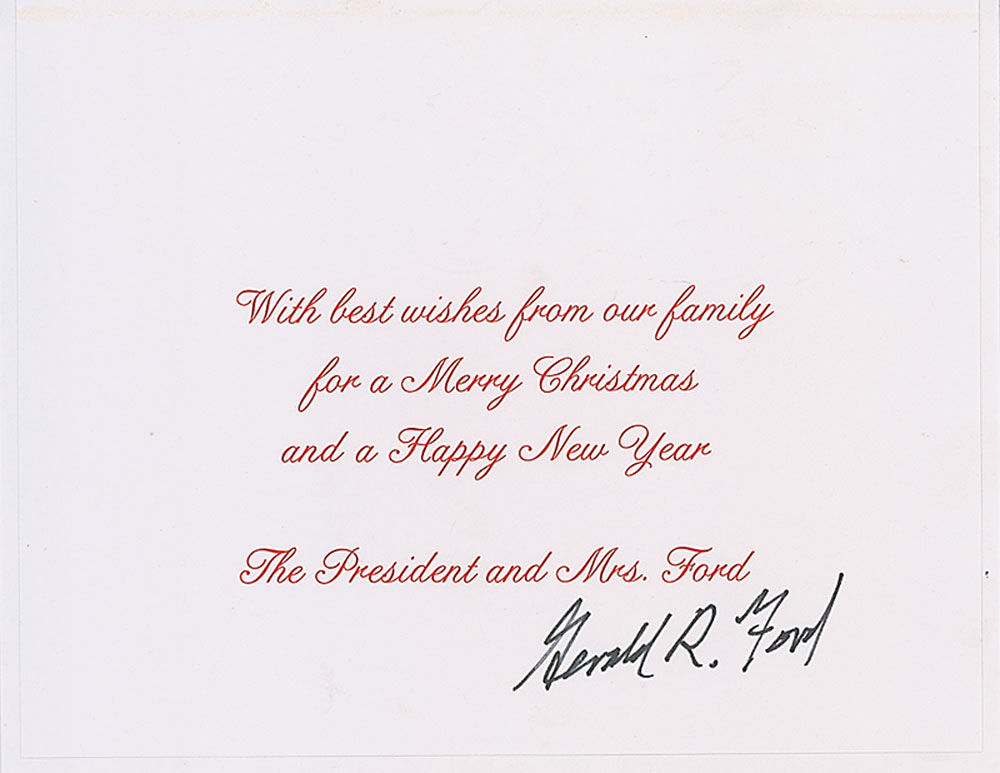 With best wishes from our family
for a Merry Christmas
and a Happy New Year
The President and Mrs. Ford
Gerald R. Ford